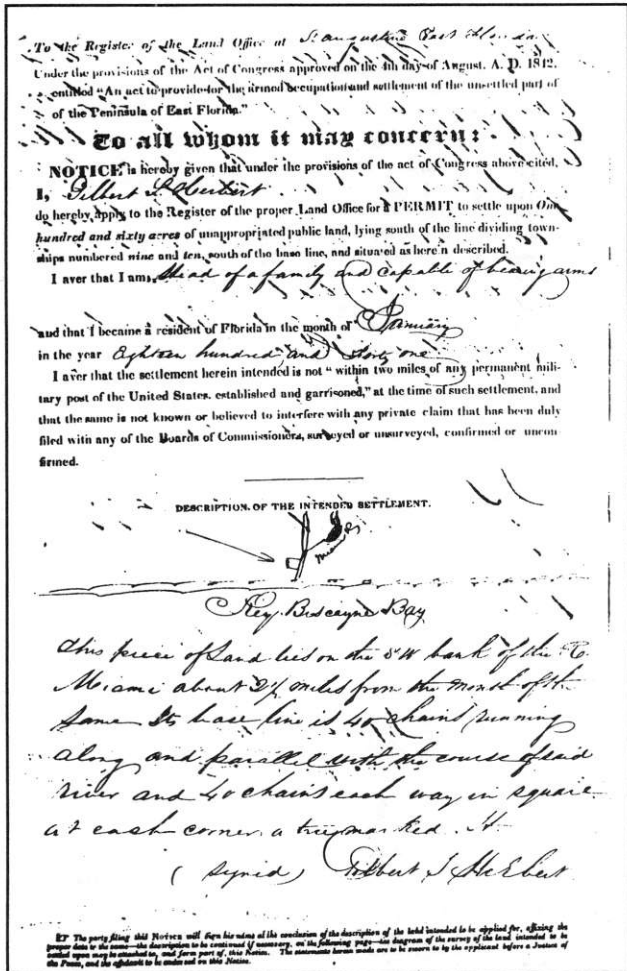 To the Register of the Land Office at St. Augustine East Florida
Under the provisions of the Act of Congress approved on the 4th day of August, A. D. 1842,
entitled "An act to provide for the armed occupation and settlement of the unsettled part of
of the Peninsula of East Florida."
To all whom it may concern:
NOTICE is hereby given that under the provisions of the act of Congress above cited,
I, Gilbert S. Herbert
do hereby apply to the Register of the proper Land Office for a PERMIT to settle upon One
hundred and sixty acres of unappropriated public land, lying south of the line dividing town-
ships numbered nine and ten, south of the base line, and situated as herein described.
I aver that I am Head of a family and capable of bearing arms
and that I became a resident of Florida in the month of January
in the year Eighteen hundred and forty one
I aver that the settlement herein intended is not "within two miles of any permanent mili-
tary post of the United States, established and garrisoned," at the time of such settlement, and
that the same is not known or believed to interfere with any private claim that has been duly
filed with any of the Boards of Commissioners, surveyed or unsurveyed, confirmed or uncon
firmed.
DESCRIPTION OF THE INTENDED SETTLEMENT.
Miami R
Key Biscayne Bay
This piece of Land lies on the SW bank of the R.
Miami about 2½ miles from the mouth of the
same Its base line is 40 chains running
along and parallel with the course of said
river and 40 chains each way in square
at each corner a tree marked H
(signed)
The party filing this NOTICE will sign his name at the conclusion of the description of the land intended to be applied for, affixing the
proper date to the same—the description to be continued if necessary, on the following page—the diagram of the survey of the land intended to be
settled upon may be attached to, and form part of, this Notice. The statements herein made are to be sworn to by the applicant before a Justice of
the Peace, and the affidavit to be endorsed on this Notice.